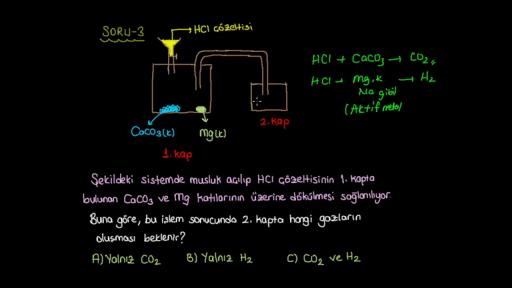 SORU-3
HCl çözeltisi
HCl + CaCO₃ → CO₂
HCl + Mg,K → H₂
Na gibi
(Aktif metal
CaCO₃(k)
Mg(k)
1. kap
2. kap
Şekildeki sistemde musluk açılıp HCl çözeltisinin 1. kapta
bulunan CaCO₃ ve Mg katılarının üzerine dökülmesi sağlanılıyor.
Buna göre, bu işlem sonucunda 2. kapta hangi gazların
oluşması beklenir?
A) Yalnız CO₂ B) Yalnız H₂ C) CO₂ ve H₂